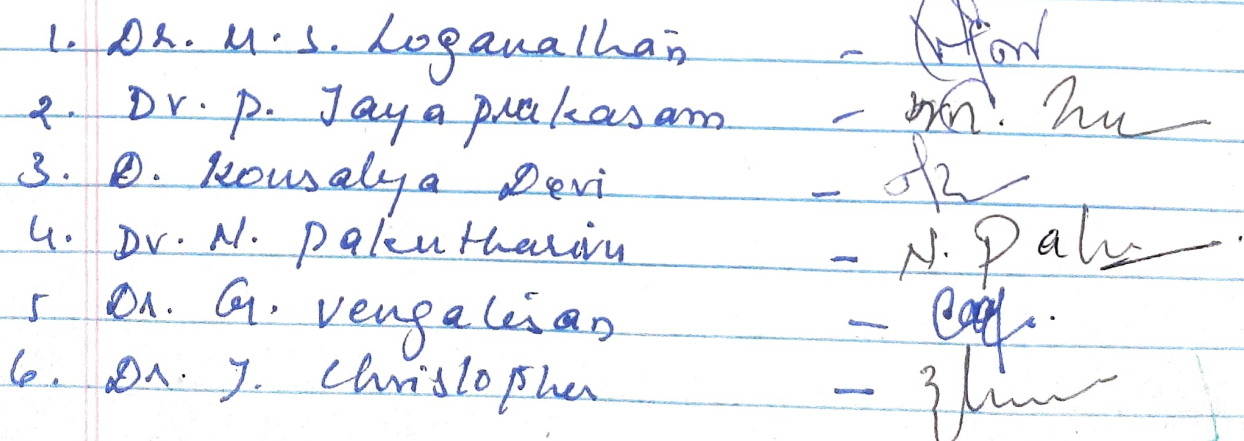 1. Dr. M.S. Loganathan -
2. Dr. P. Jaya prakasam -
3. D. Kousalya Devi -
4. Dr. N. Pakutharivu - N. Paku
5 Dr. G. Vengatesan -
6. Dr. J. Christopher -